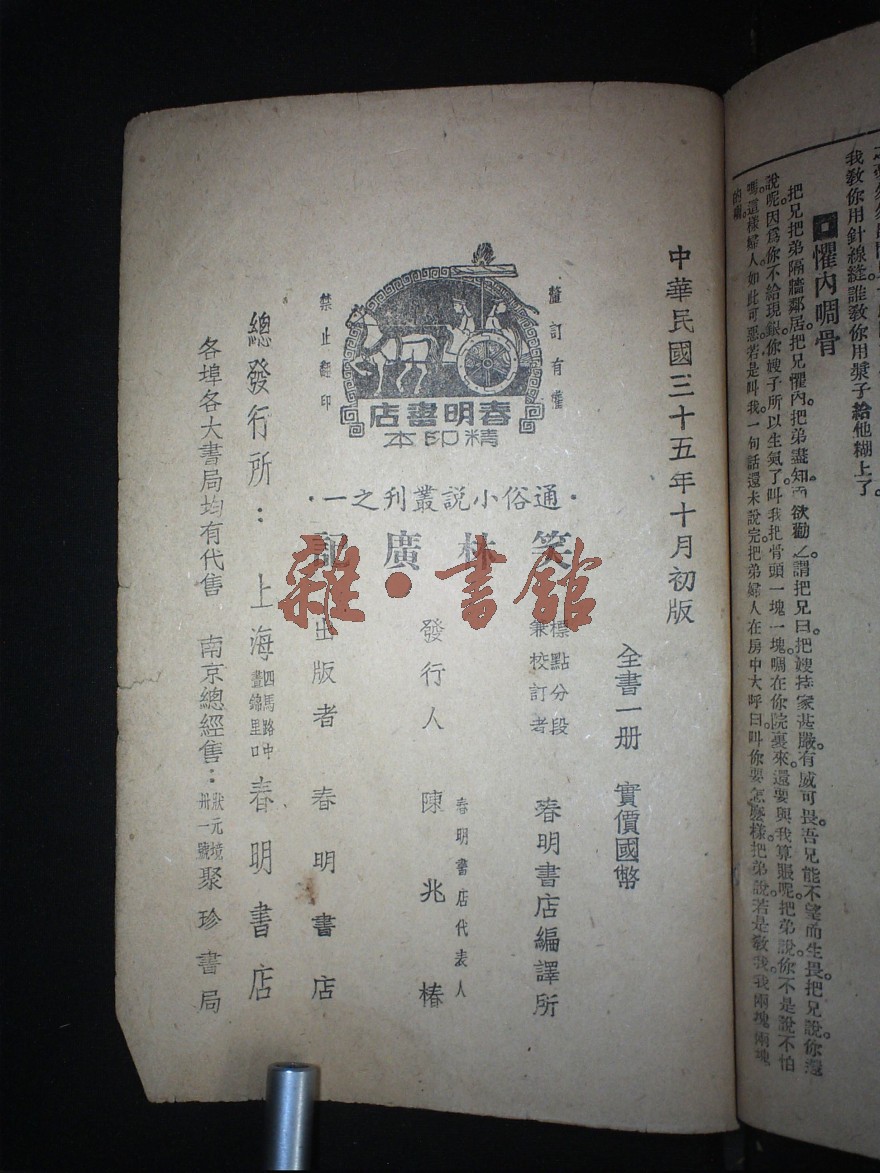 我教你用針線縫誰教你用漿子給他糊上了。
懼內啁骨
把兄把弟隔牆鄰居。把兄懼內。把弟盡知。而欲勸之。謂把兄曰。把嫂持家甚嚴。有威可畏。吾兄能不望而生畏。把兄說。你還
說呢。因爲你不給現銀。你嫂子所以生氣了。叫我把骨頭一塊一塊啁在你院裏來。還要與我算賬呢。把弟說。你不是說不怕
嗎。這樣婦人如此可惡。若是叫我。一句話還未說完。把弟婦人在房中大呼曰。叫你要怎麽樣。把弟說。若是敎我。我兩塊兩塊
的啁。
中華民國三十五年十月初版
全書一册 實價國幣
釐訂有權
禁止翻印
春明書店
精印本
·通俗小説叢刊之一·
笑林廣記
標點分段
兼校訂者
春明書店編譯所
發行人
春明書店代表人
陳兆椿
出版者 春明書店
總發行所：上海
四馬路中
晝錦里口
春明書店
各埠各大書局均有代售 南京總經售：
狀元境
卅一號
聚珍書局
雜·書館